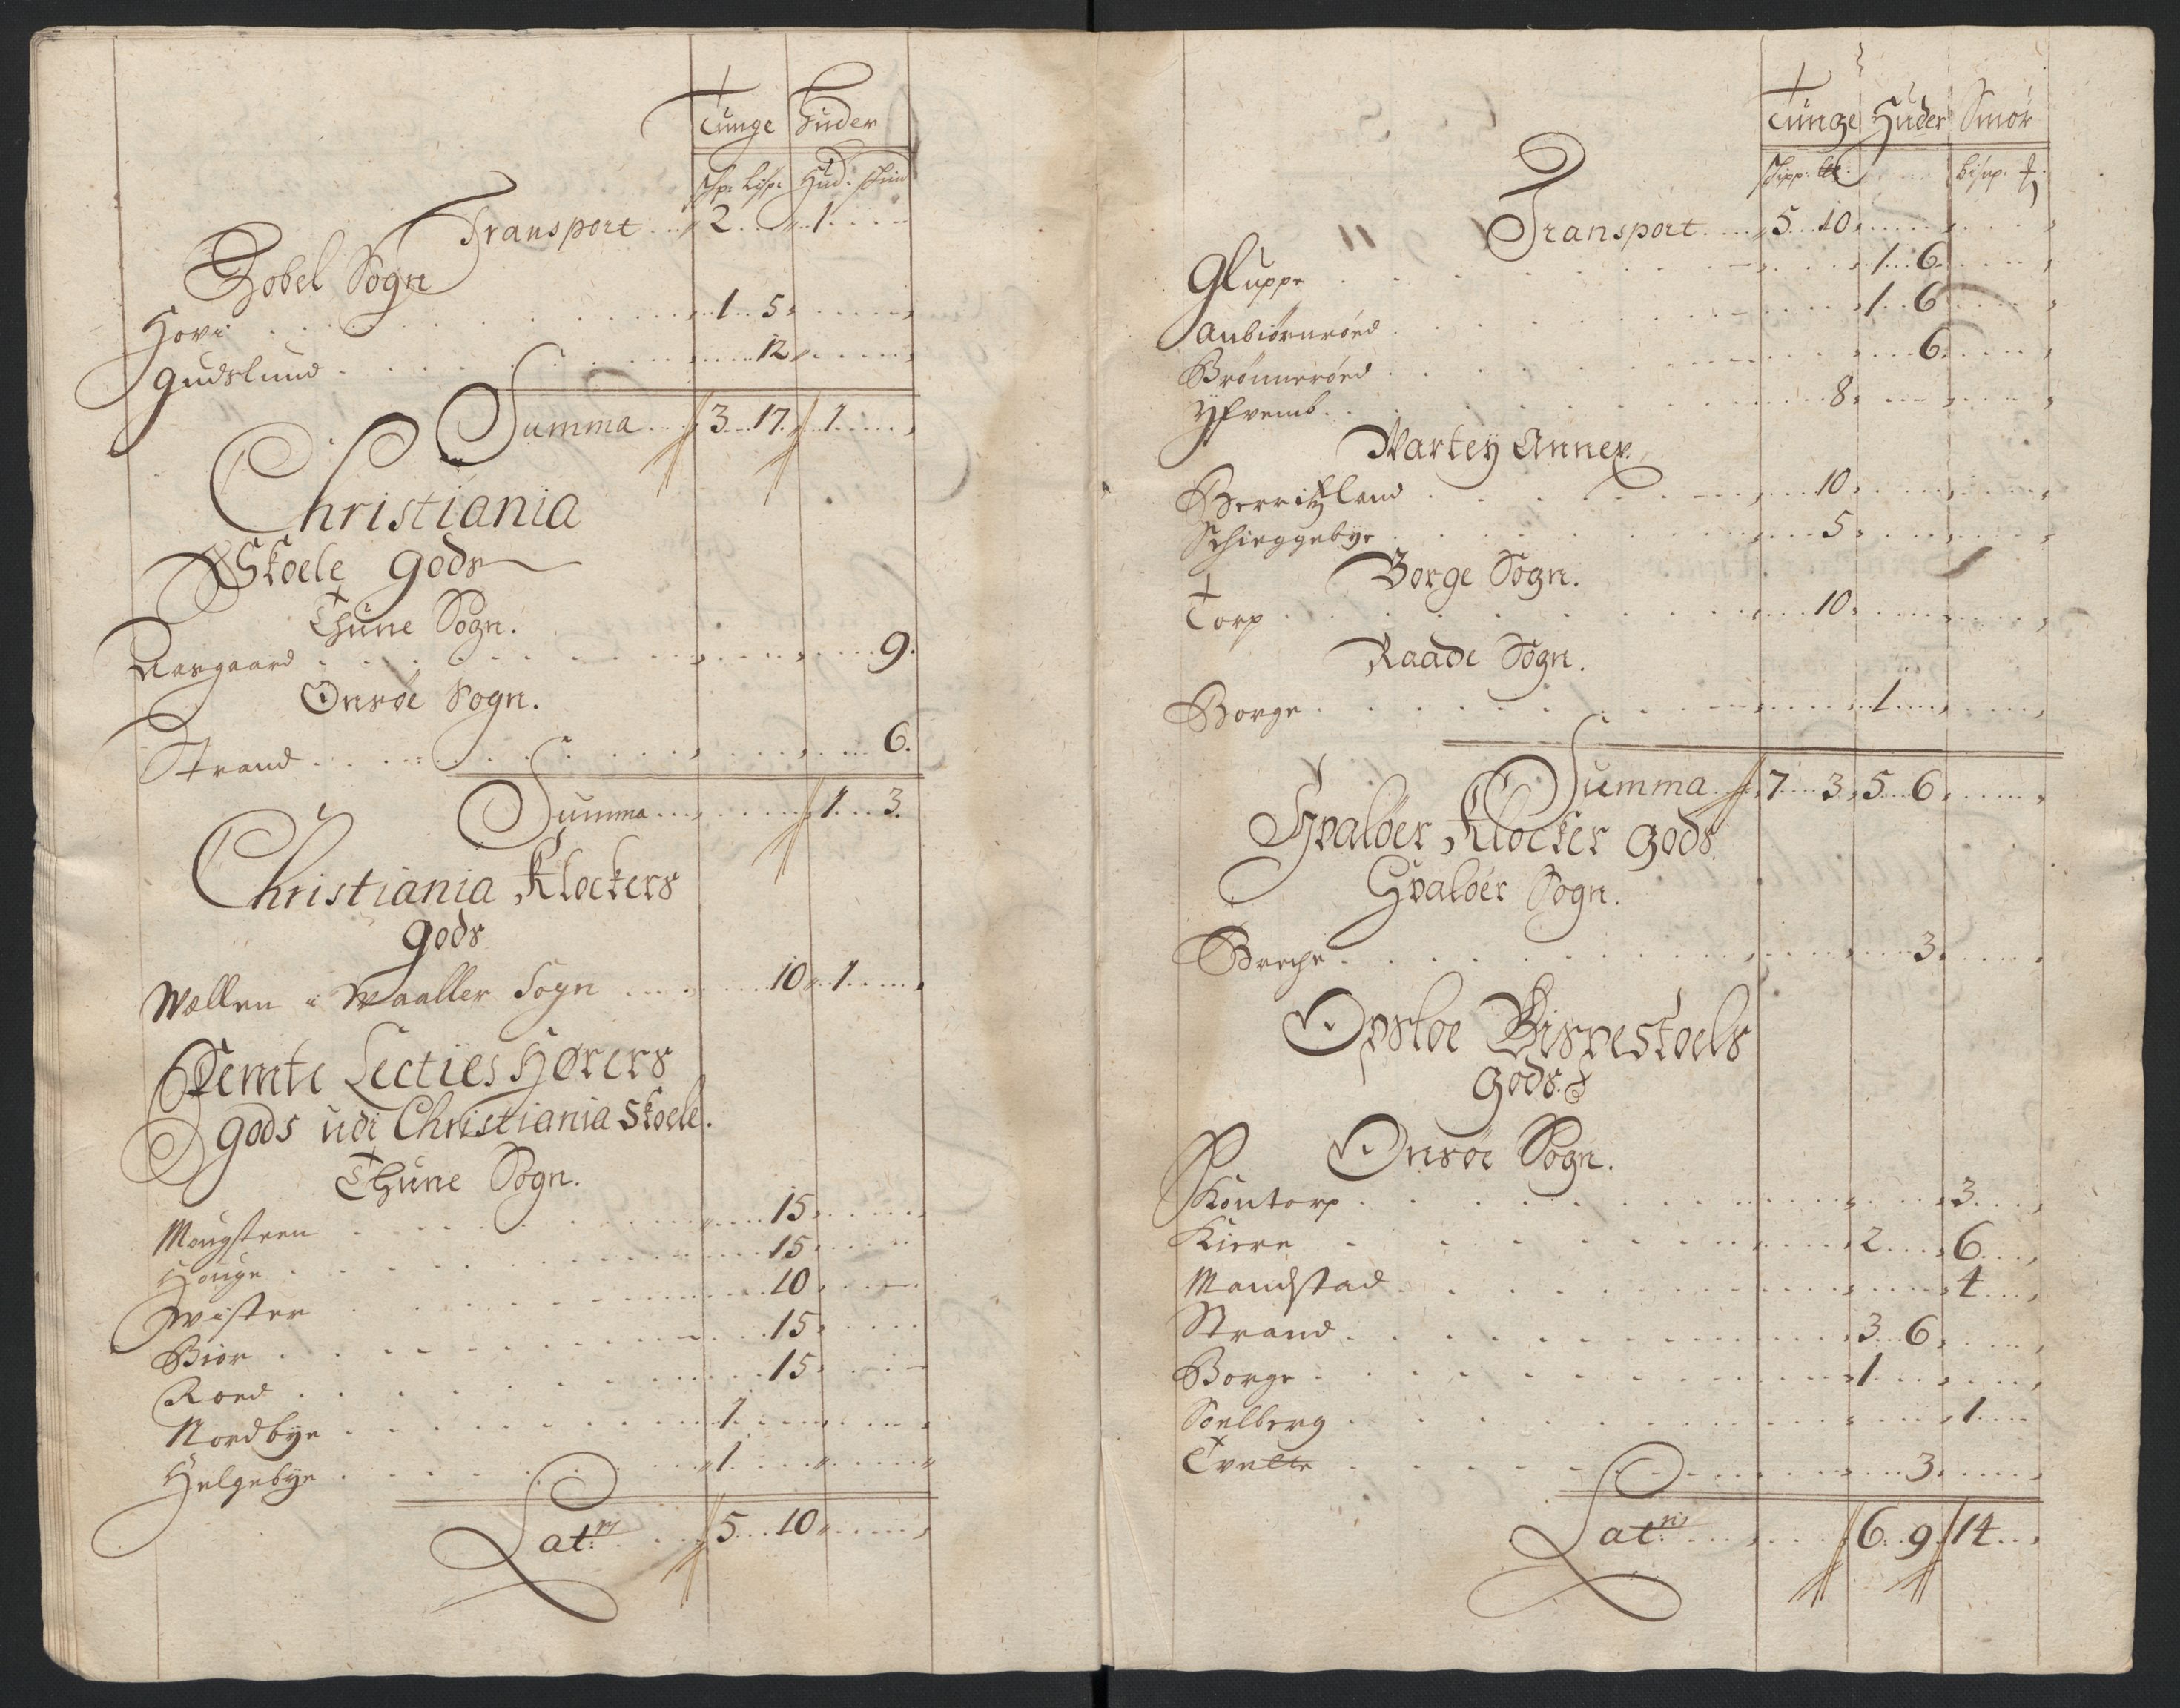 Tunge Huder
Skp: Lisp: Hud: Skin
Transport 2 1
Hobel Sogn
Hovi 1 5
Gudslund 12
Summa 3 17 1
Christiania
Skoele Gods
Thune Sogn.
Aasgaard 9.
Onsøe Sogn.
Strand 6.
Summa 1 3.
Christiania Klockers
Gods
Wællen i Waaller Sogn 10 1
Femte Lecties Hørers
Gods udi Christiania Skoele.
Thune Sogn.
Mougsteen 15
Houge 15
Wister 10
Biør 15
Roed 15
Nordbye 1
Helgebye 1
Lat: 5 10
Tunge Huder Smør
Skipp: Lisp.
Transport 5 10
Gluppe 1 6
Aubiørnrøed 1 6
Brønnerøed 6
Yfvemb 8
Vartey Annex.
Berritzland 10
Schieggebye 5
Borge Sogn.
Torp 10
Raade Sogn.
Borge 1
Summa 7 3 5 6
Hvaløer Klocker Gods
Hvaløer Sogn.
Breche 3
Opsloe Bispestoels
Gods.
Onsøe Sogn.
Kontorp 3
Kiere 2 6
Mandstad 4
Strand 3 6
Borge 1
Soelberg 1
Tvette 3
Lat: 6 9 14